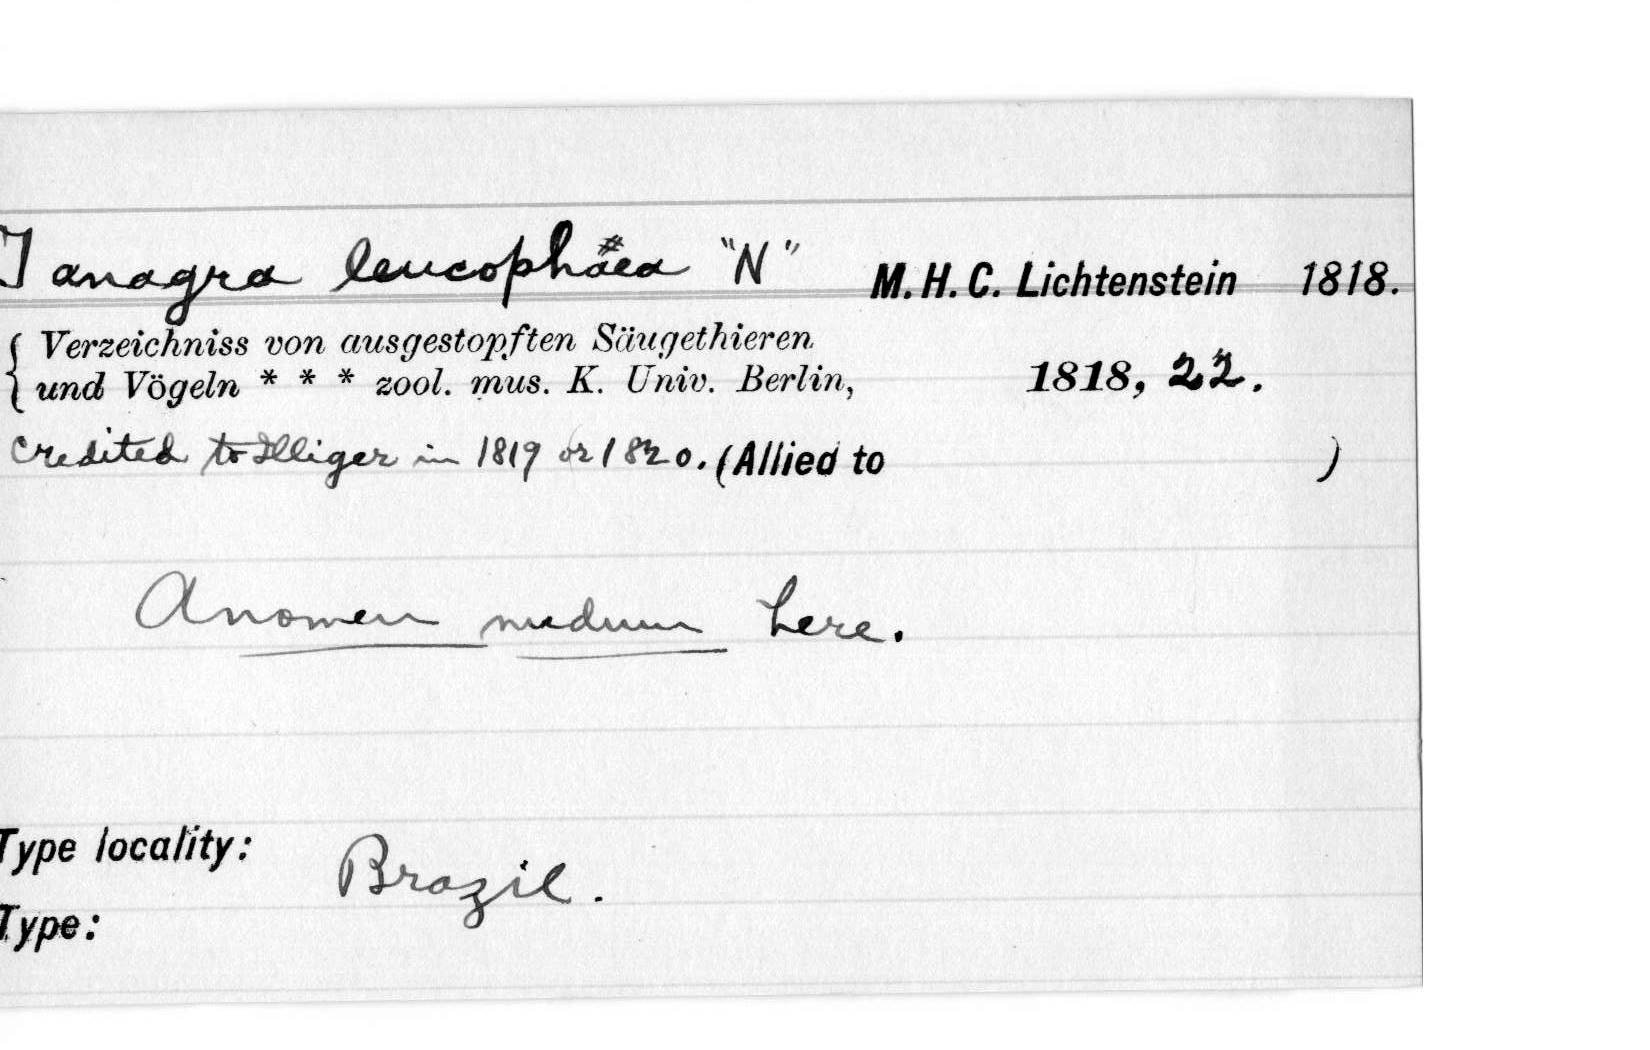 Tanagra leucophäea "N" M. H. C. Lichtenstein 1818.
{ Verzeichniss von ausgestopften Säugethieren
und Vögeln * * * zool. mus. K. Univ. Berlin, 1818, 22.
Credited to Illiger in 1819 or 1820. (Allied to )
A nomen nudum here.
Type locality: Brazil.
Type: